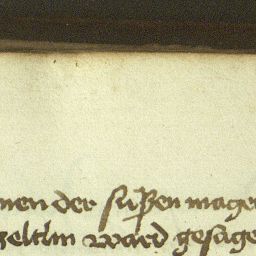 nen der sußen mage
zeltlin ward gesage